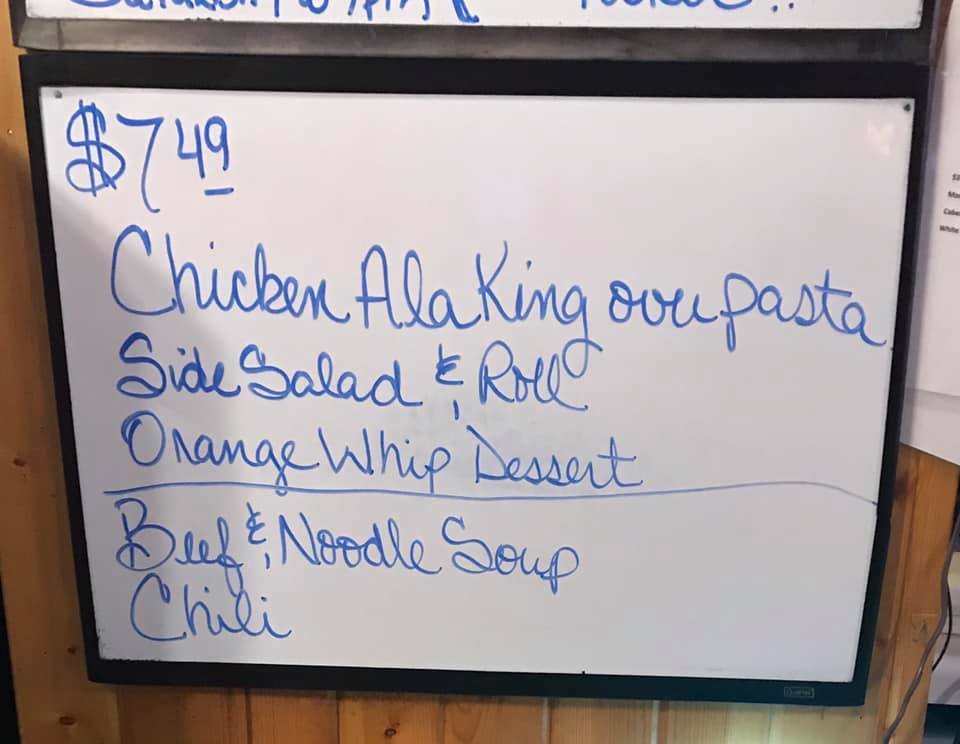 $7.49
Chicken Ala King over pasta
Side Salad & Roll
Orange Whip Dessert
Beef & Noodle Soup
Chili